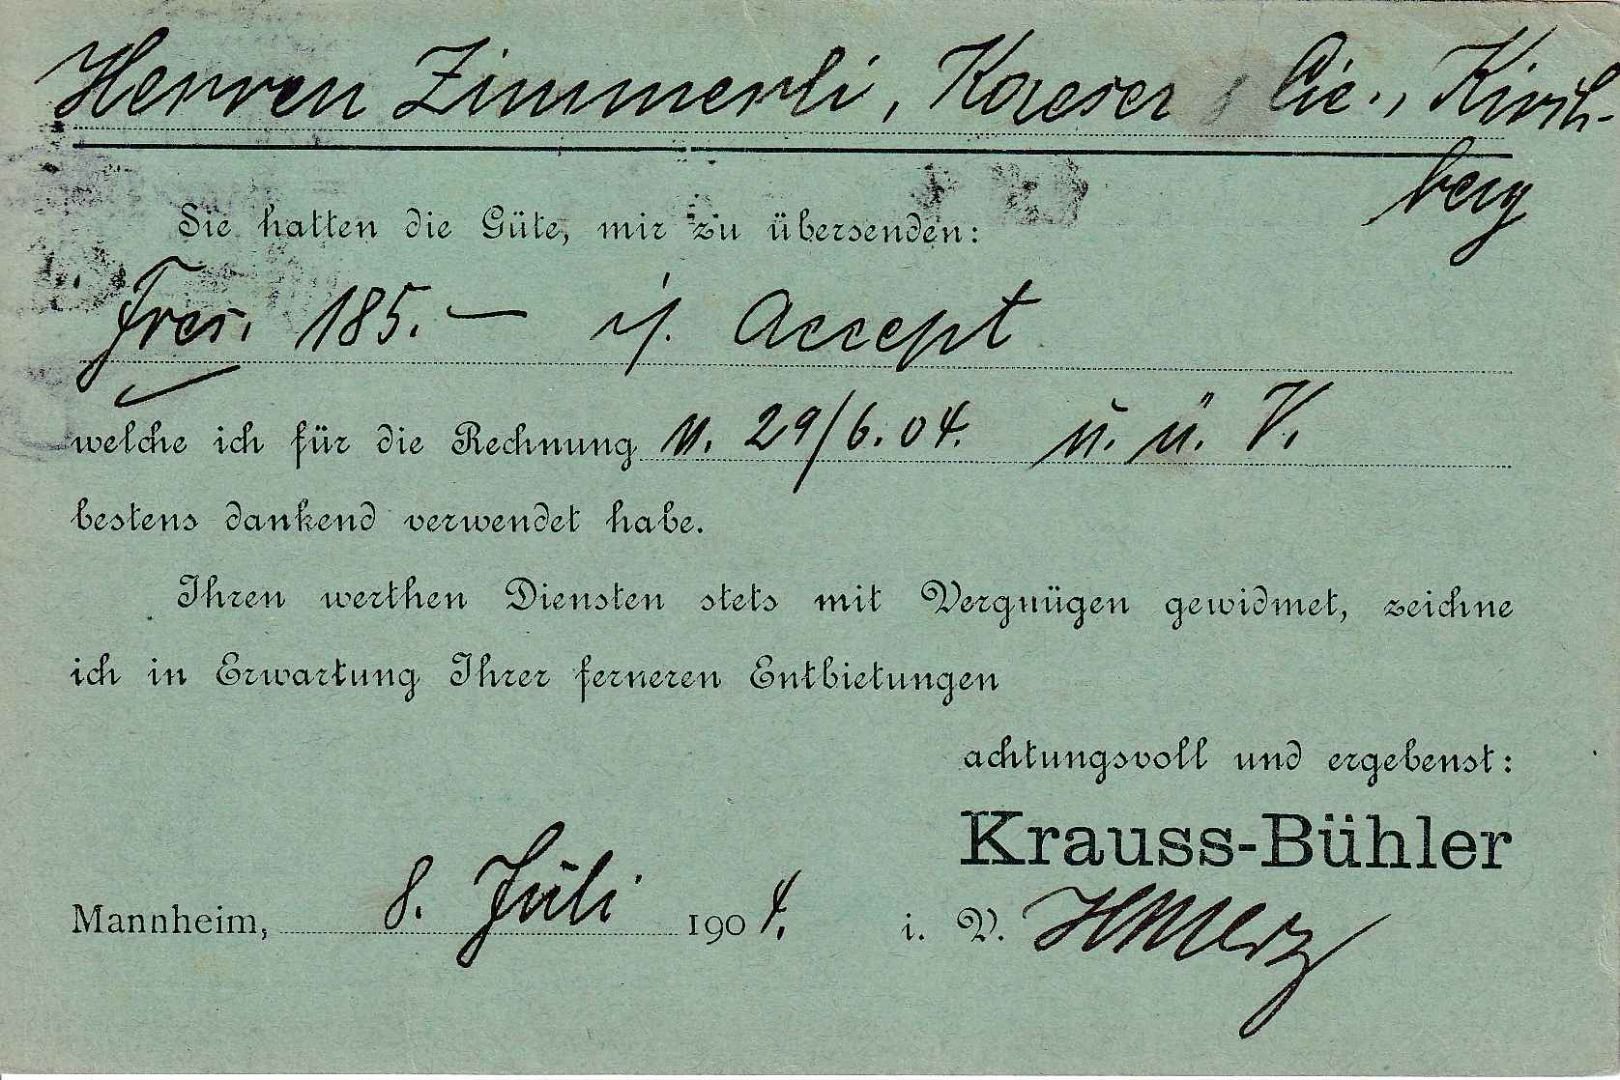 Herren Zimmerli, Kaeser & Cie., Kirch-
berg
Sie hatten die Güte, mir zu übersenden:
Frcs. 185.— i/. Accept
welche ich für die Rechnung v. 29/6.04. u. ü. V.
bestens dankend verwendet habe.
Ihren werthen Diensten stets mit Vergnügen gewidmet, zeichne
ich in Erwartung Ihrer ferneren Entbietungen
achtungsvoll und ergebenst:
Krauss-Bühler
Mannheim, 8. Juli 1904.
i. V. HMerz